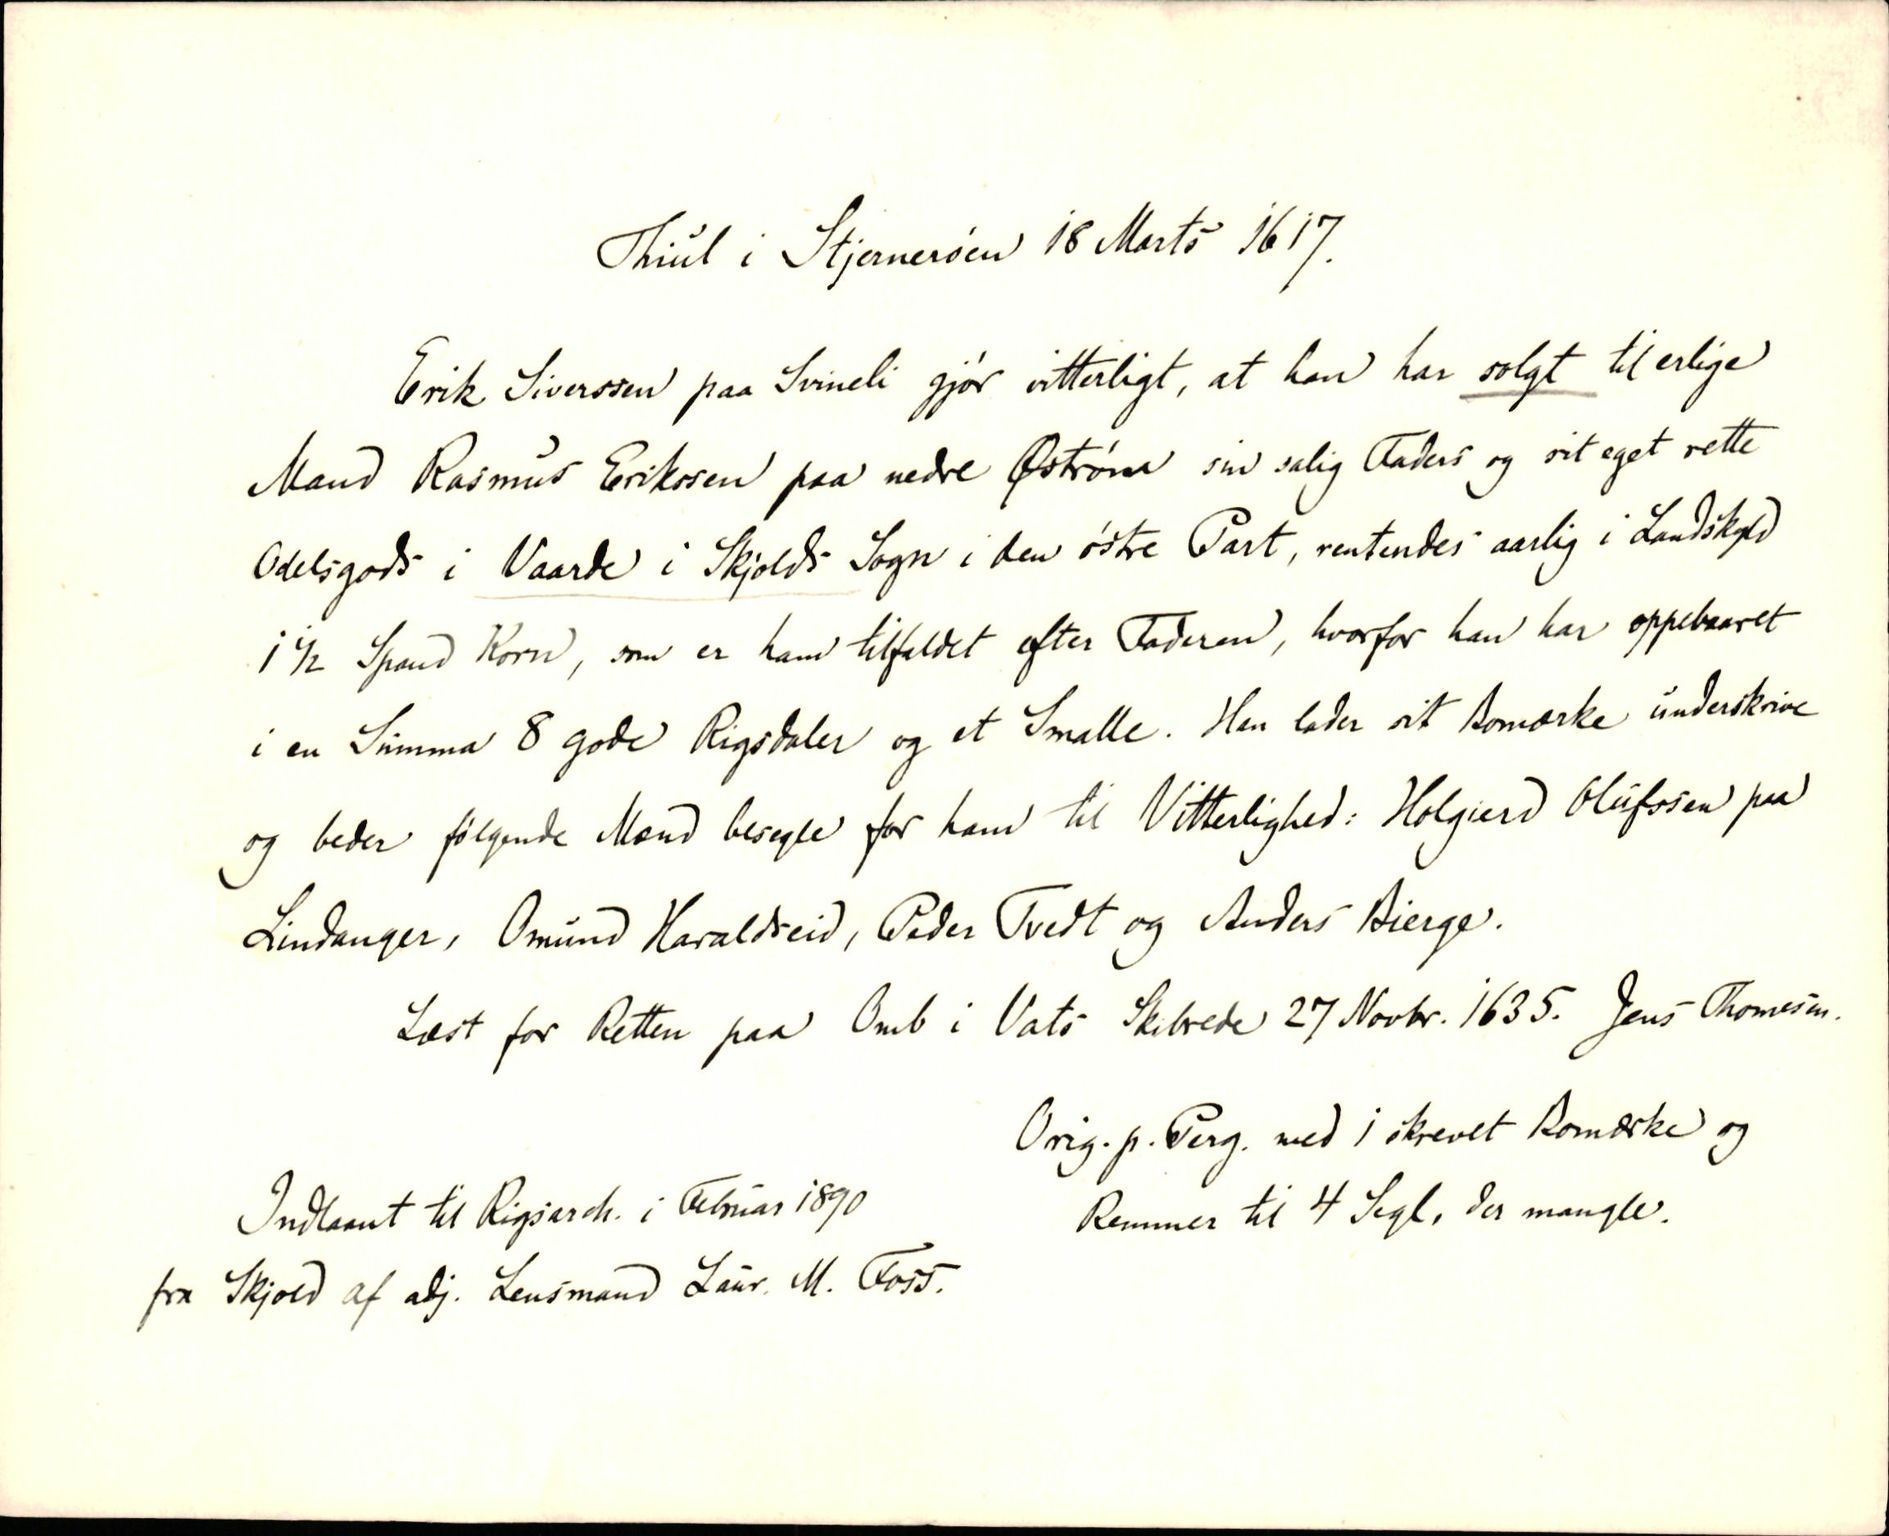 Thiul i Stjernerøen 18 Marts 1617.
Erik Siverssen paa Svineli gjør vitterligt, at han har solgt til erlige
Mand Rasmus Erikssen paa nedre Østrøm sin salig Faders og sit eget rette
Odelsgods i Vaarde i Skjolds Sogn i den østre Part, rentendes aarlig i Landskyld
1 1/2 Spand Korn, som er ham tilfaldet efter Faderen, hvorfor han har oppebaaret
i en Summa 8 gode Rigsdaler og et Smalle. Han lader sit Bomærke underskrive
og beder følgende Mænd besegle for ham til Vitterlighed: Holgierd Olufssen paa
Lindanger, Omund Haraldseid, Peder Tvedt og Anders Bierge.
Læst for Retten paa Omb i Vats Skibrede 27 Novbr. 1635. Jens Thomesen.
Orig. p. Perg. med 1 skrevet Bomærke og
Remmer til 4 Segl, der mangle.
Indlaant til Rigsarch. i Februar 1890
fra Skjold af adj. Lensmand Laur. M. Foss.